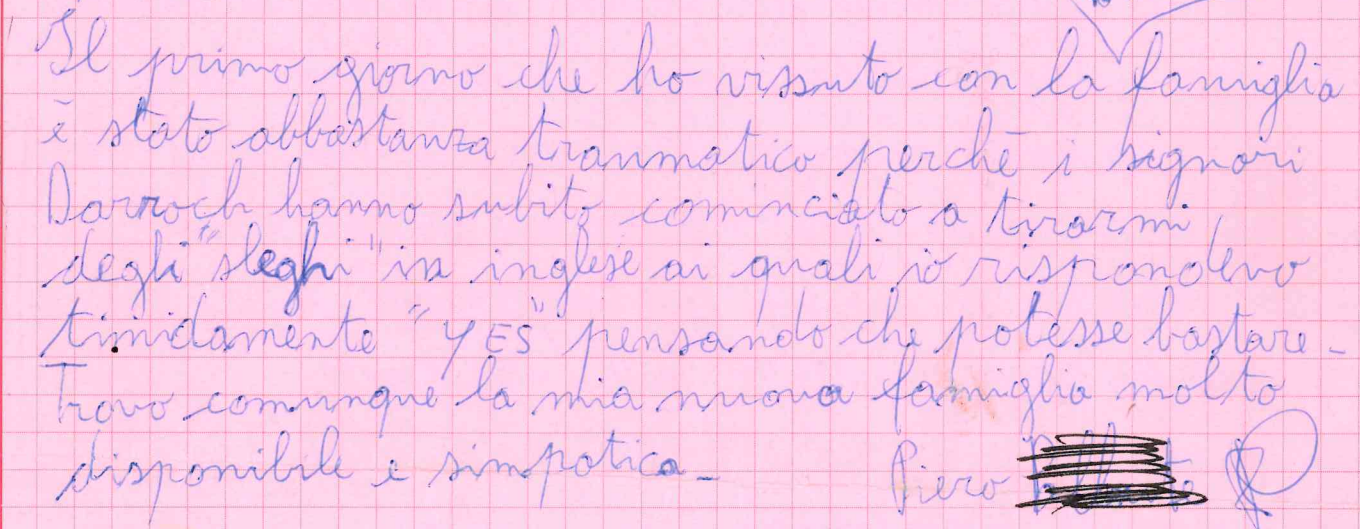 Il primo giorno che ho vissuto con la famiglia
è stato abbastanza traumatico perchè i signori
Darroch hanno subito cominciato a tirarmi
degli "sleghi" in inglese ai quali io rispondevo
timidamente "YES" pensando che potesse bastare -
Trovo comunque la mia nuova famiglia molto
disponibile e simpatica -
Piero